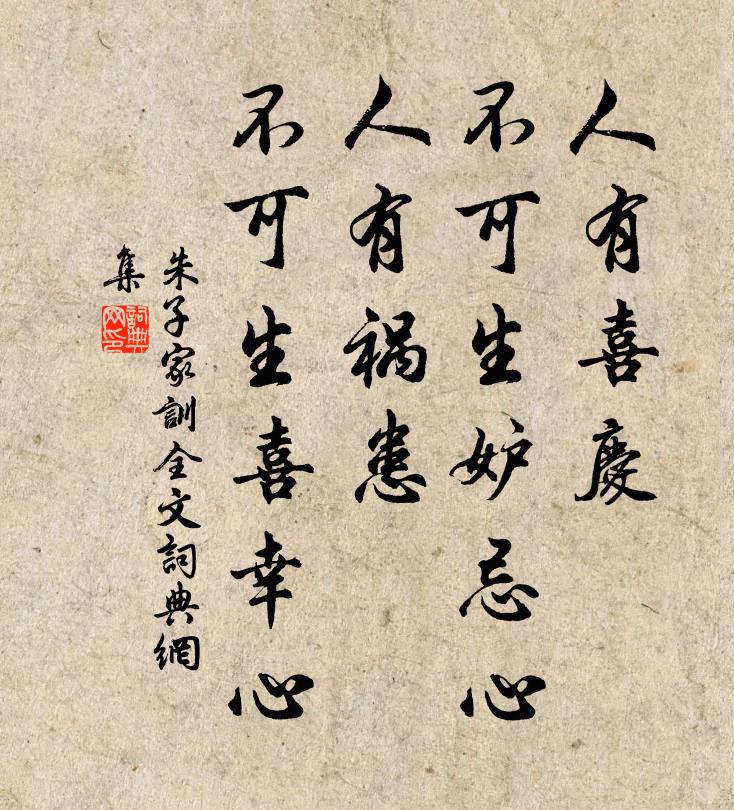 人有喜慶
不可生妒忌心
人有禍患
不可生喜幸心
朱子家訓全文詞典網
集
詞典
网